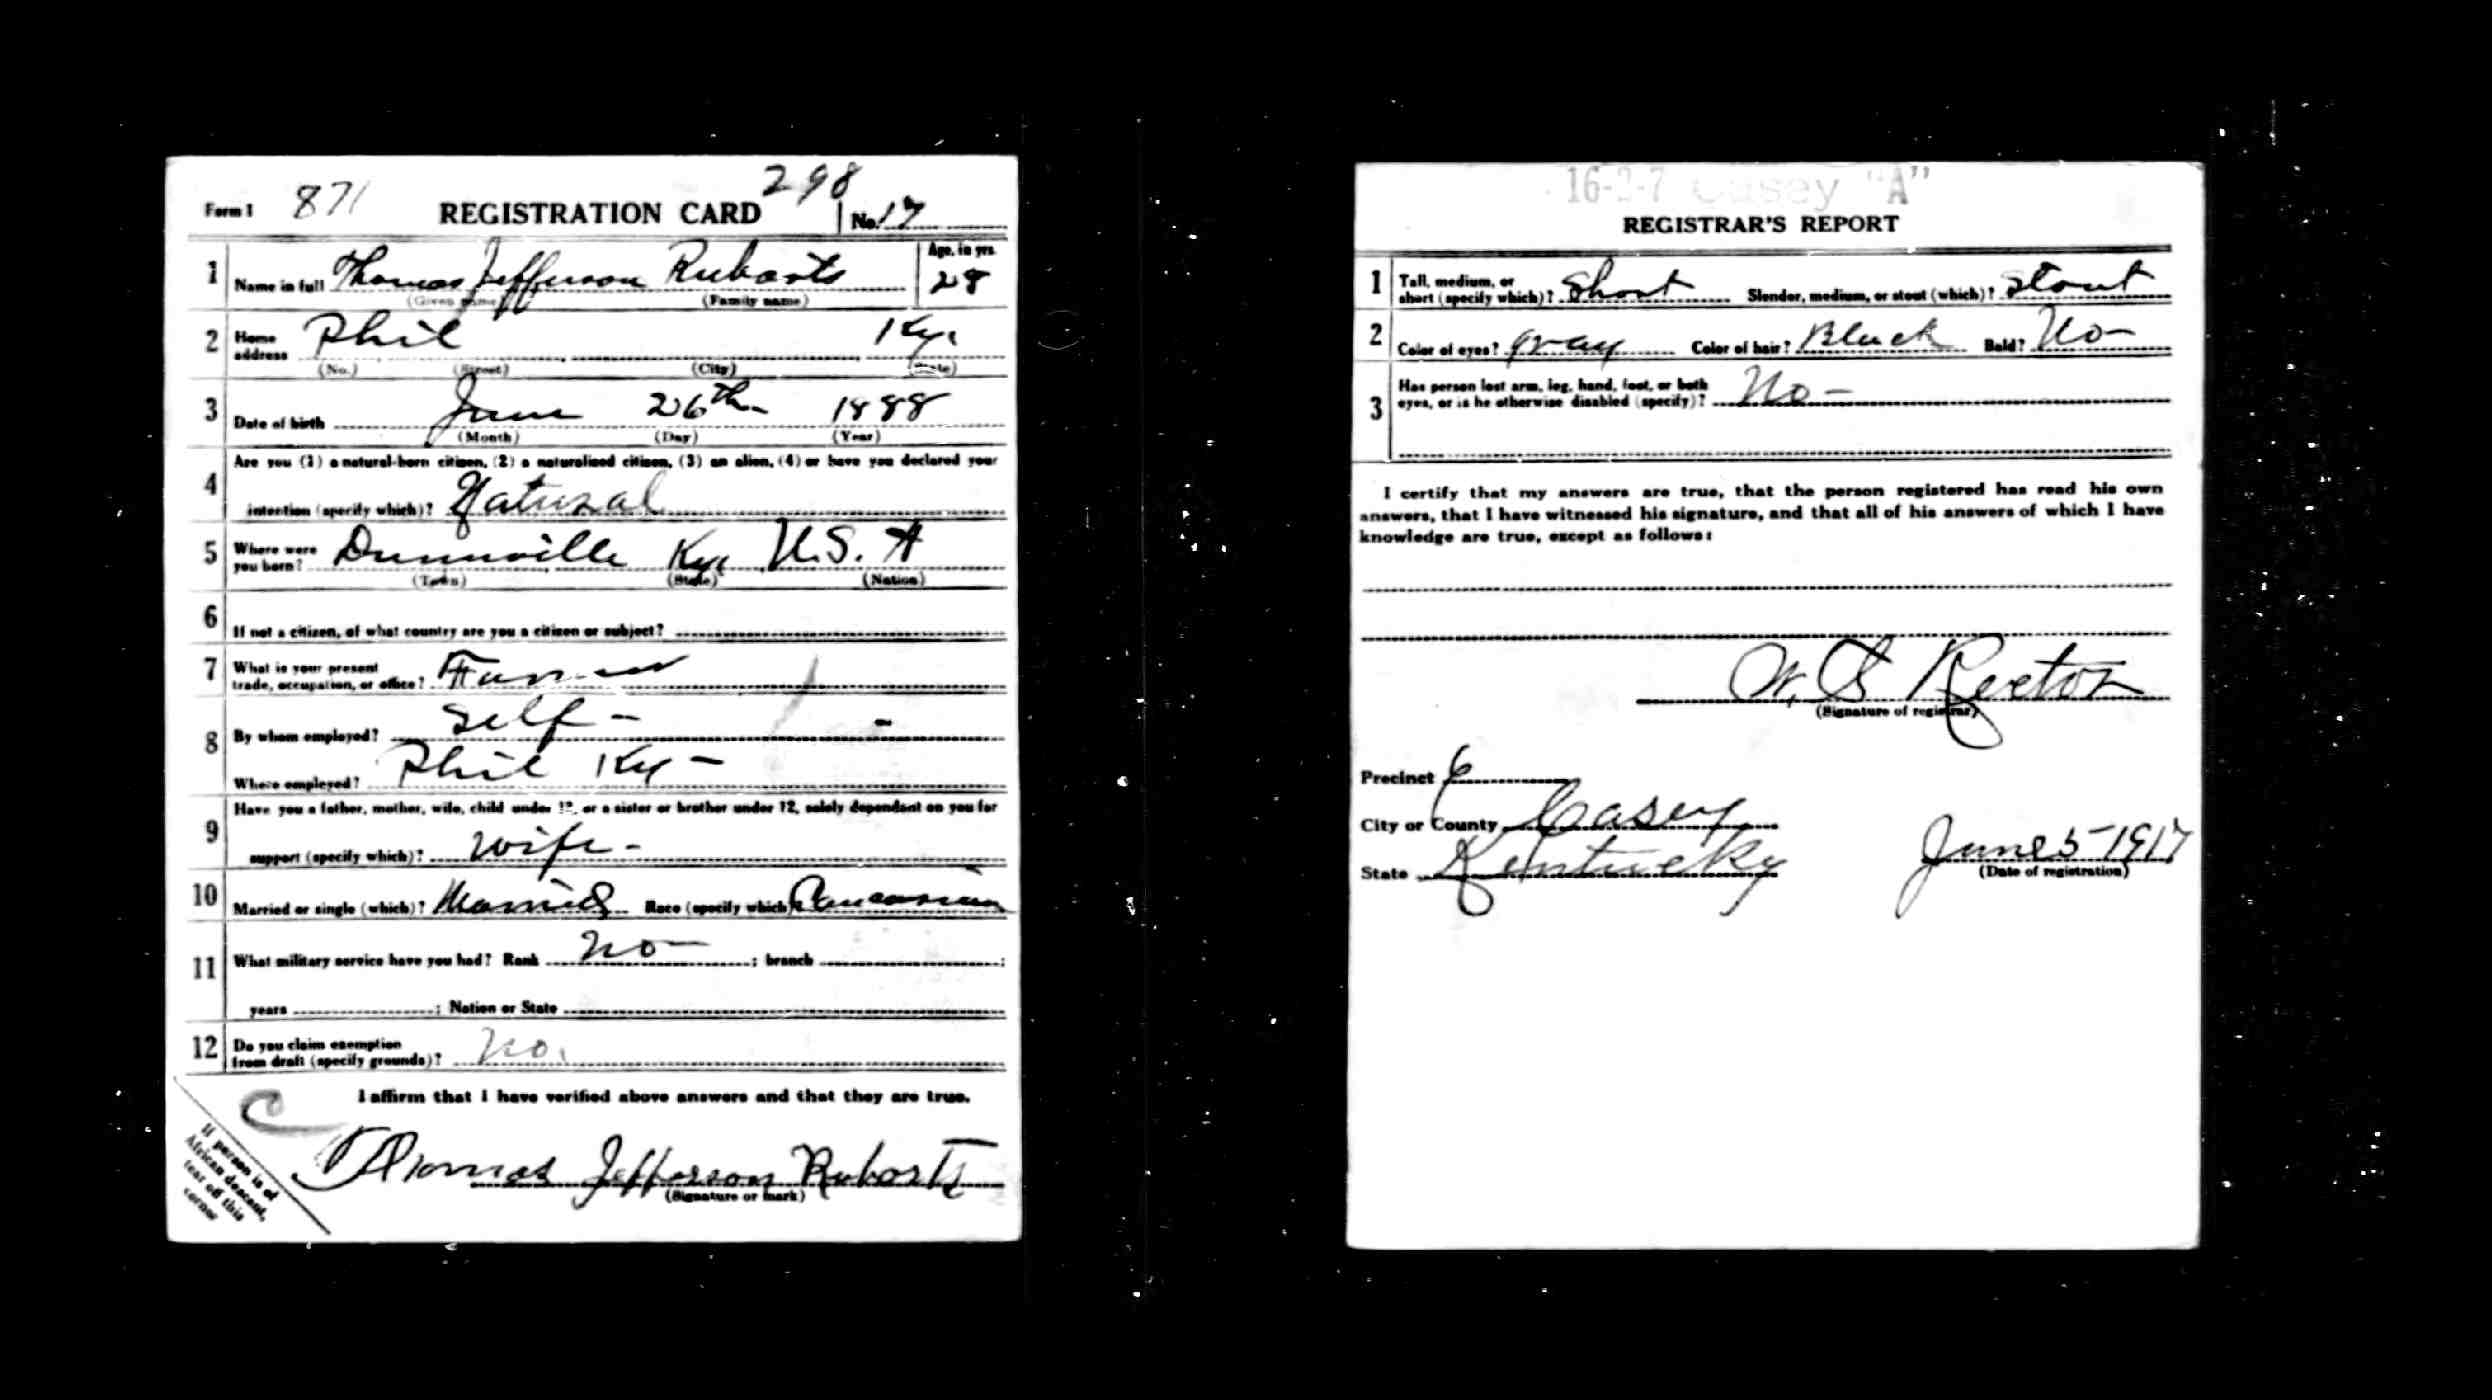 298
Form 1 871 REGISTRATION CARD No. 17
1 Name in full Thomas Jefferson Rubarts Age, in yrs. 28
(Given name) (Family name)
2 Home address Phil Ky.
(No.) (Street) (City) (State)
3 Date of birth June 26th 1888
(Month) (Day) (Year)
4 Are you (1) a natural-born citizen, (2) a naturalized citizen, (3) an alien, (4) or have you declared your
intention (specify which)? Natural
5 Where were you born? Dunnville Ky. U.S.A
(Town) (State) (Nation)
6 If not a citizen, of what country are you a citizen or subject?
7 What is your present
trade, occupation, or office? Farmer
8 By whom employed? Self -
Where employed? Phil Ky -
9 Have you a father, mother, wife, child under 12, or a sister or brother under 12, solely dependent on you for
support (specify which)? Wife -
10 Married or single (which)? Married Race (specify which)? Caucasian
11 What military service have you had? Rank No - ; branch ;
years ; Nation or State
12 Do you claim exemption
from draft (specify grounds)? No.
I affirm that I have verified above answers and that they are true.
C
Thomas Jefferson Rubarts
(Signature or mark)
If person is of
African descent,
tear off this
corner
16-2-7 Casey "A"
REGISTRAR'S REPORT
1 Tall, medium, or
short (specify which)? Short Slender, medium, or stout (which)? Stout
2 Color of eyes? Gray Color of hair? Black Bald? No -
3 Has person lost arm, leg, hand, foot, or both
eyes, or is he otherwise disabled (specify)? No -
I certify that my answers are true, that the person registered has read his own
answers, that I have witnessed his signature, and that all of his answers of which I have
knowledge are true, except as follows:
W. S.
(Signature of registrar)
Precinct 6
City or County Casey
State Kentucky June 5 1917
(Date of registration)